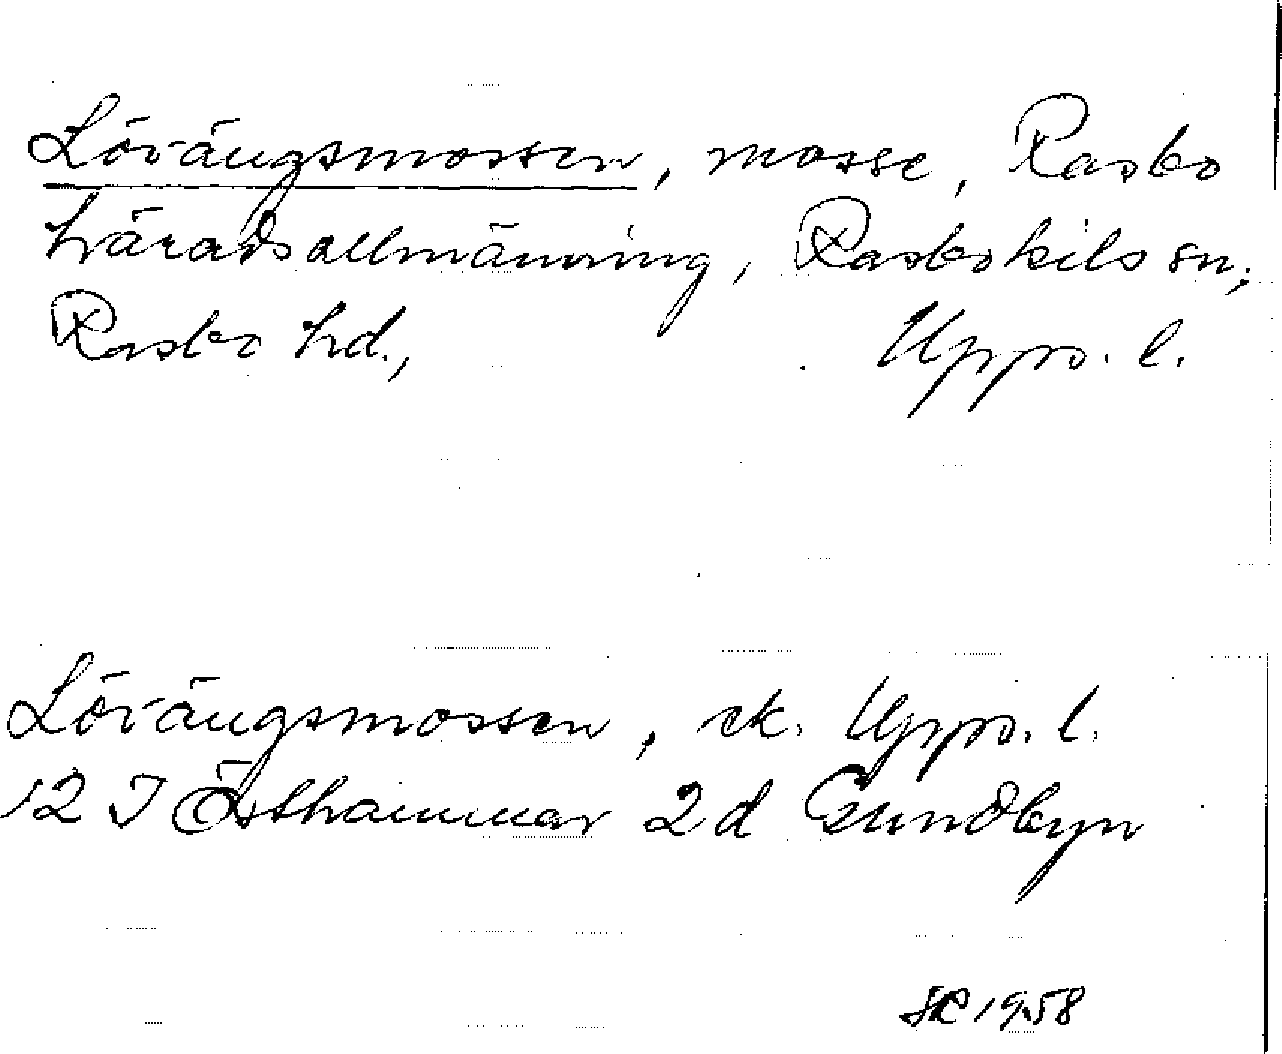 Lövängsmossen, mosse, Rasbo
häradsallmänning, Rasbokils sn,
Rasbo hd., Upps. l.
Lövängsmossen, ek. Upps. l.
12 I Östhammar 2d Gundbyn
1958